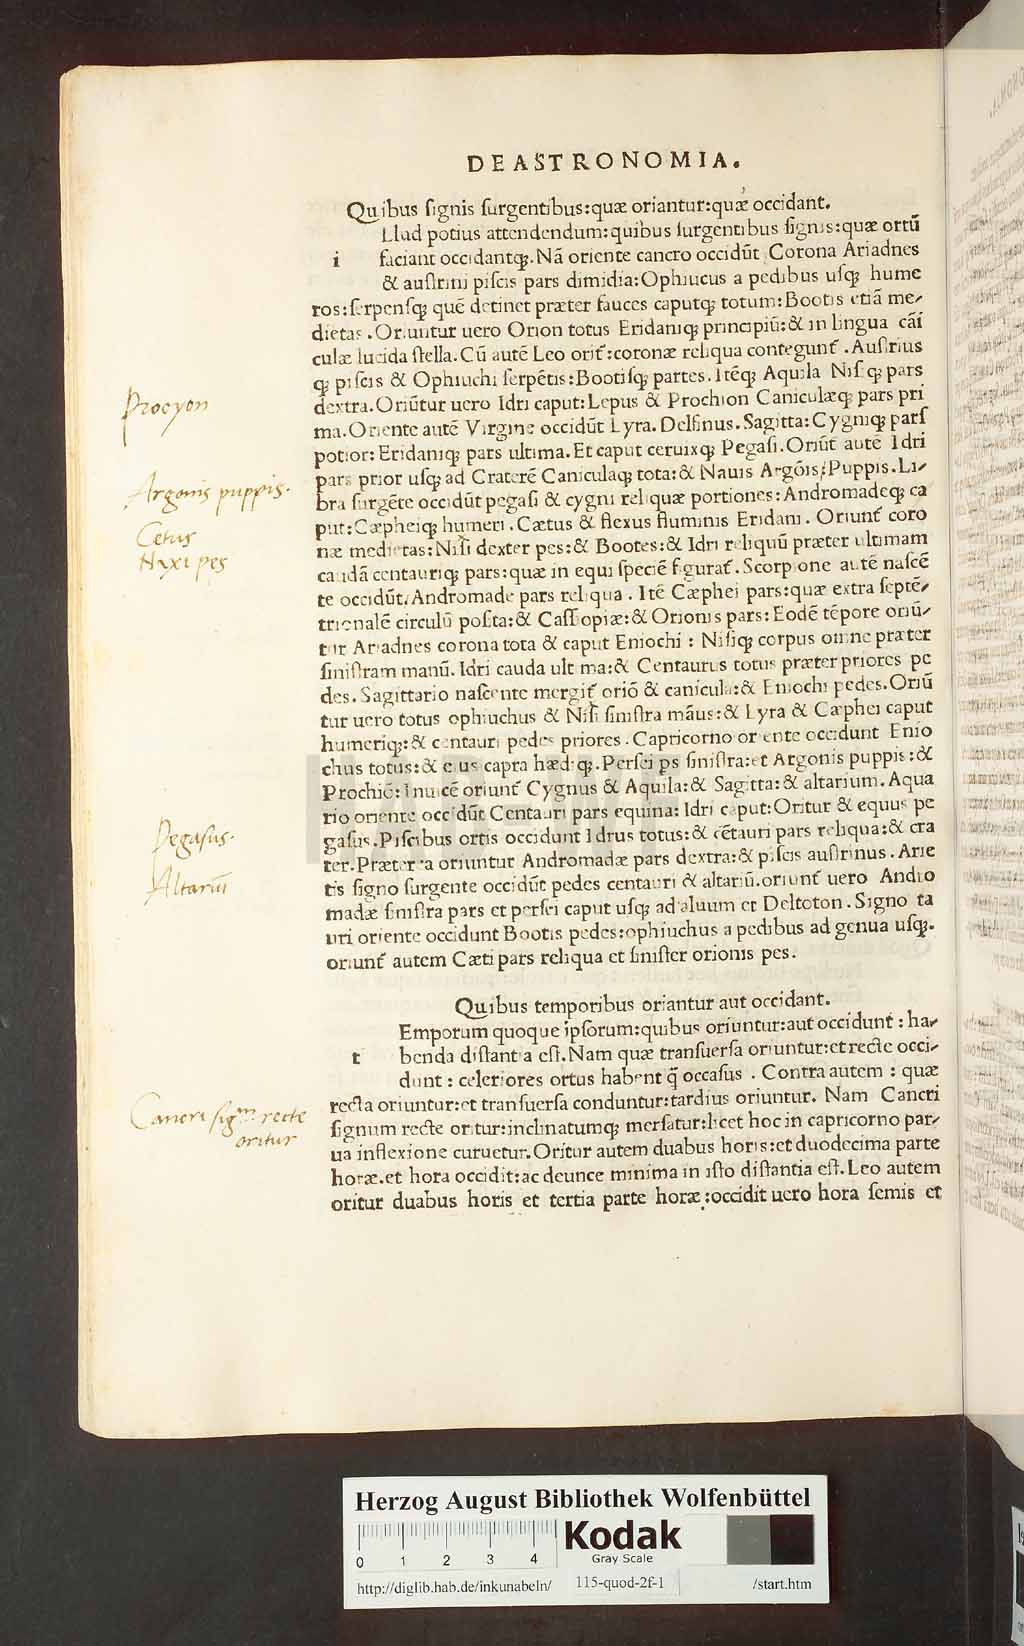 DE ASTRONOMIA.
Quibus ſignis ſurgentibus:quæ oriantur:quæ occidant.
i Llud potius attendendum:quibus ſurgentibus ſignis:quæ ortū
faciant occidantq;. Nā oriente cancro occidūt Corona Ariadnes
& auſtrini piſcis pars dimidia:Ophiucus a pedibus uſq; hume
ros:ſerpenſq; quē detinet præter fauces caputq; totum:Bootis etiā me-
dietas. Oriuntur uero Orion totus Eridaniq; principiū:& in lingua cāi
culæ lucida ſtella. Cū autē Leo orit̄:coronæ reliqua contegunt̄. Auſtrius
q; piſcis & Ophiuchi ſerpētis:Bootiſq; partes. Itēq; Aquila Niſiq; pars
dextra. Oriūtur uero Idri caput:Lepus & Prochion Caniculæq; pars pri
ma. Oriente autē Virgine occidūt Lyra. Delfinus. Sagitta: Cygniq; parſ
potior: Eridaniq; pars ultima. Et caput ceruixq; Pegaſi. Oriūt autē Idri
pars prior uſq; ad Craterē Caniculaq; tota:& Nauis Argōis:Puppis. Li-
bra ſurgēte occidūt pegaſi & cygni reliquæ portiones: Andromadeq; ca
put:Cæpheiq; humeri. Cætus & flexus fluminis Eridani. Oriunt̄ coro
næ medietas: Niſi dexter pes:& Bootes:& Idri reliquū præter ultimam
caudā centauriq; pars:quæ in equi ſpeciē figurat̄. Scorpione autē naſcē
te occidūt Andromade pars reliqua. Itē Cæphei pars:quæ extra ſeptē-
trionalē circulū poſita:& Caſſiopiæ:& Orionis pars: Eodē tēpore oriū-
tur Ariadnes corona tota & caput Eniochi : Niſiq; corpus omne præter
ſiniſtram manū. Idri cauda ultima:& Centaurus totus præter priores pe
des. Sagittario naſcente mergit̄ oriō & canicula:& Eniochi pedes. Oriū
tur uero totus ophiuchus & Niſi ſiniſtra māus:& Lyra & Cæphei caput
humeriq;:& centauri pedes priores. Capricorno oriente occidunt Enio
chus totus:& eius capra hædiq;. Perſei ps ſiniſtra:et Argonis puppis:&
Prochiō: Inuicē oriunt̄ Cygnus & Aquila:& Sagitta:& altarium. Aqua
rio oriente occidūt Centauri pars equina: Idri caput:Oritur & equus pe
gaſus. Piſcibus ortis occidunt Idrus totus:& cētauri pars reliqua:& cra
ter. Præterea oriuntur Andromadæ pars dextra:& piſcis auſtrinus. Arie
tis ſigno ſurgente occidūt pedes centauri & altariū.oriunt̄ uero Andro
madæ ſiniſtra pars et perſei caput uſq; ad aluum et Deltoton. Signo ta
uri oriente occidunt Bootis pedes:ophiuchus a pedibus ad genua uſq;.
oriunt̄ autem Cæti pars reliqua et ſiniſter orionis pes.
Quibus temporibus oriantur aut occidant.
t Emporum quoque ipſorum:quibus oriuntur:aut occidunt : ha-
benda diſtantia eſt. Nam quæ tranſuerſa oriuntur:et recte occi-
dunt : celeriores ortus habent q̄ occaſus . Contra autem : quæ
recta oriuntur:et tranſuerſa conduntur:tardius oriuntur. Nam Cancri
ſignum recte oritur:inclinatumq; merſatur:licet hoc in capricorno par-
ua inflexione curuetur. Oritur autem duabus horis:et duodecima parte
horæ.et hora occidit:ac deunce minima in iſto diſtantia eſt. Leo autem
oritur duabus horis et tertia parte horæ:occidit uero hora ſemis et
Procyon
Argonis puppis.
Cetus
Nixi pes
Pegasus.
Altariū
Cancri sigm. recte
oritur
HAB-WF
Herzog August Bibliothek Wolfenbüttel
0 1 2 3 4
Kodak
Gray Scale
http://diglib.hab.de/inkunabeln/ 115-quod-2f-1 /start.htm